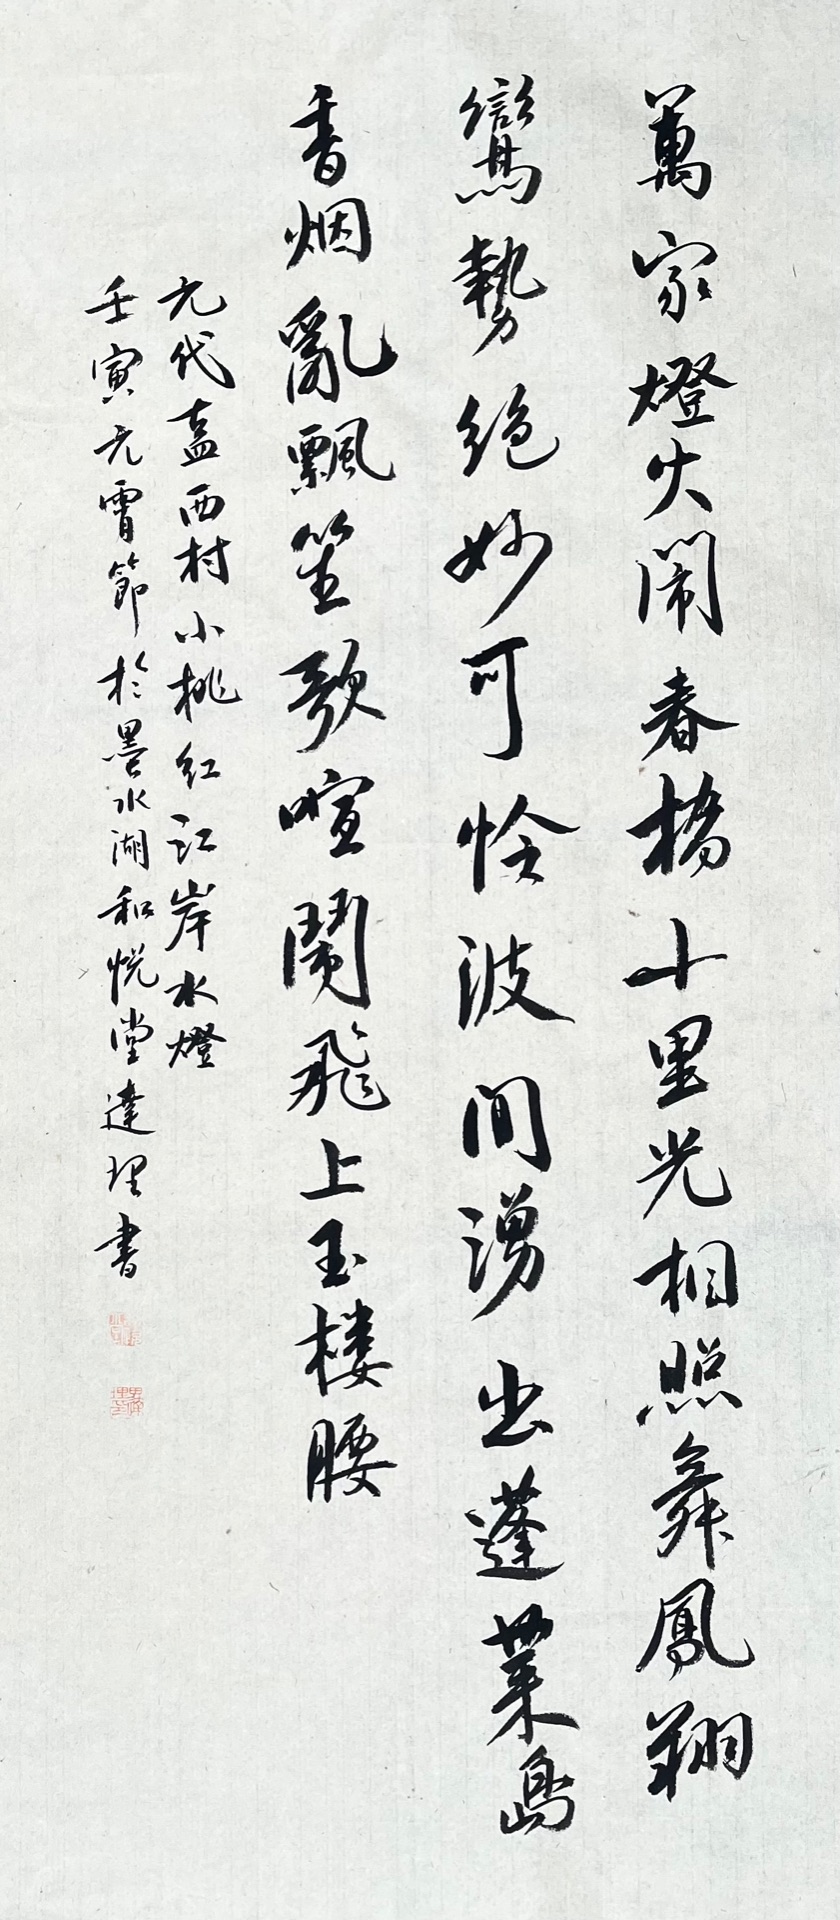 萬家燈火鬧春橋十里光相照舞鳳翔
鸞勢絕妙可怜波間湧出蓬萊島
香烟亂飄笙歌喧鬧飛上玉楼腰
元代盍西村小桃红江岸水燈
壬寅元宵節於墨水湖和悦堂達理書